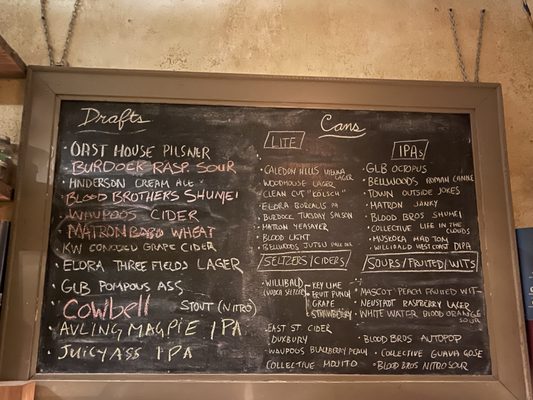 Drafts
· OAST HOUSE PILSNER
· BURDOCK RASP. SOUR
· ANDERSON CREAM ALE
· BLOOD BROTHERS SHUMEI
· WAUPOOS CIDER
· MATRON BOBO WHEAT
· KW CONCORD GRAPE CIDER
· ELORA THREE FIELDS LAGER
· GLB POMPOUS ASS
· COWbell STOUT (NITRO)
· AVLING MAGPIE IPA
· JUICY ASS IPA
Cans
LITE
· CALEDON HILLS VIENNA LAGER
· WOODHOUSE LAGER
· CLEAN CUT "KÖLSCH"
· ELORA BOREALIS PA
· BURDOCK TUESDAY SAISON
· MATRON YEASAYER
· BLOOD LIGHT
· BELLWOODS JUTSU PALE ALE
SELTZERS/CIDERS
· WILLIBALD (VODKA SELTZER)
KEY LIME
FRUIT PUNCH
GRAPE
STRAWBERRY
· EAST ST CIDER
DUXBURY
· WAUPOOS BLACKBERRY PEACH
COLLECTIVE MOJITO
IPAs
· GLB OCTOPUS
· BELLWOODS ROMAN CANDLE
· TOWN OUTSIDE JOKES
· MATRON JANKY
· BLOOD BROS SHUMEI
· COLLECTIVE LIFE IN THE CLOUDS
· MUSKOKA MAD TOM
· WILLIBALD WEST COAST DIPA
SOURS/FRUITED/WITS
· MASCOT PEACH FRUITED WIT
· NEUSTADT RASPBERRY LAGER
· WHITE WATER BLOOD ORANGE SOUR
· BLOOD BROS AUTOPOP
· COLLECTIVE GUAVA GOSE
· BLOOD BROS NITRO SOUR